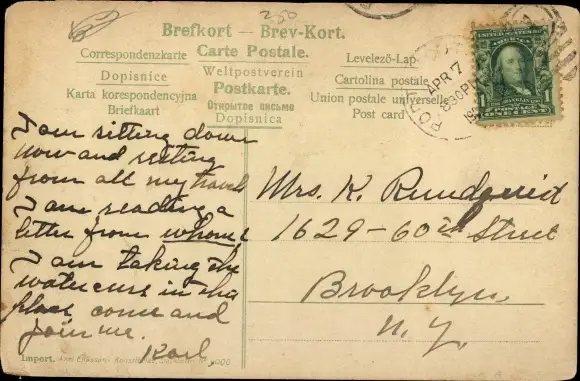 250
Brefkort — Brev-Kort.
Correspondenzkarte
Carte Postale.
Levelező-Lap
Dopisnice
Weltpostverein
Cartolina postale
Karta korespondencyjna
Postkarte.
Union postale universelle
Briefkaart
Открытое письмо
Post card
Dopisnica
UNITED STATES OF AMERICA
FRANKLIN
1 1
ONE CENT
APR 7
830PM
I am sitting down
now and resting
from all my travel
I am reading a
letter from whom?
I am taking the
water cure in this
place come and
join me.
Karl
Mrs. K. Rundquist
1629-60th Street
Brooklyn
N. Y.
Import.